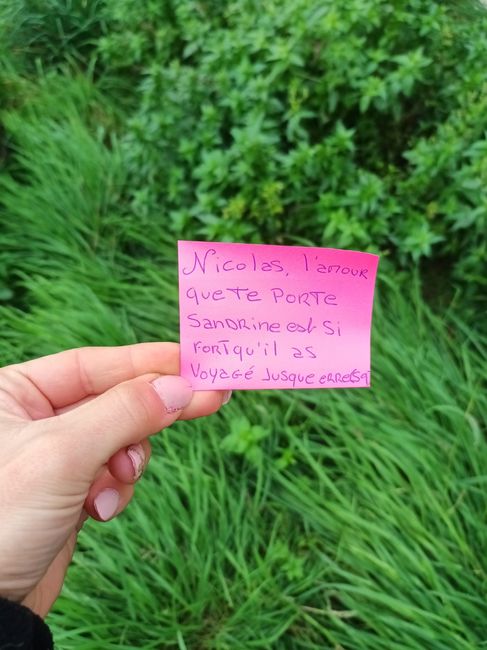 Nicolas, l'amour
que te porte
Sandrine est si
fort qu'il as
Voyagé jusque